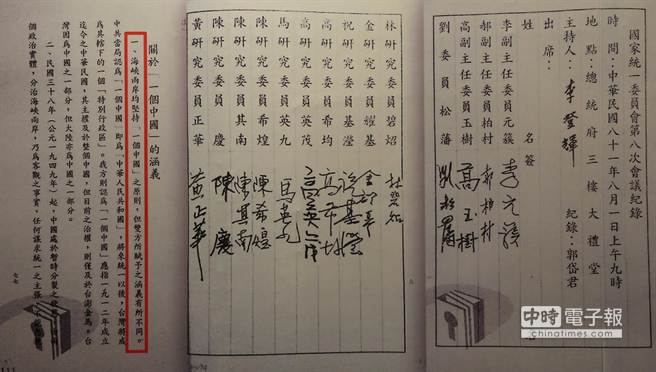 國家統一委員會第八次會議紀錄
時間：中華民國八十一年八月一日上午九時
地點：總統府三樓大禮堂
主持人：李登輝
紀錄：郭岱君
出席：
姓名 簽
李副主任委員元簇 李元簇
郝副主任委員柏村 郝柏村
高副主任委員玉樹 高玉樹
劉委員松藩 劉松藩
林研究委員碧炤 林碧炤
金研究委員耀基 金耀基
祝研究委員基瀅 祝基瀅
高研究委員
高研究委員英茂 高英茂
馬研究委員英九 馬英九
陳研究委員希煌 陳希煌
陳研究委員其南 陳其南
陳研究委員慶 陳慶
黃研究委員正華 黃正華
關於「一個中國」的涵義
一、海峽兩岸均堅持「一個中國」之原則，但雙方所賦予之涵義有所不同。
中共當局認為「一個中國」即為「中華人民共和國」，將來統一以後，台灣將成
為其轄下的一個「特別行政區」。我方則認為「一個中國」應指一九一二年成立
迄今之中華民國，其主權及於整個中國，但目前之治權，則僅及於台澎金馬。台
灣固為中國之一部分，但大陸亦為中國之一部分。
二、民國三十八年（公元一九四九年）起，中國處於暫時分裂之
個政治實體，分治海峽兩岸，乃為客觀之事實，任何謀求統一之主張
七七
中時電子報
chinatimes.com